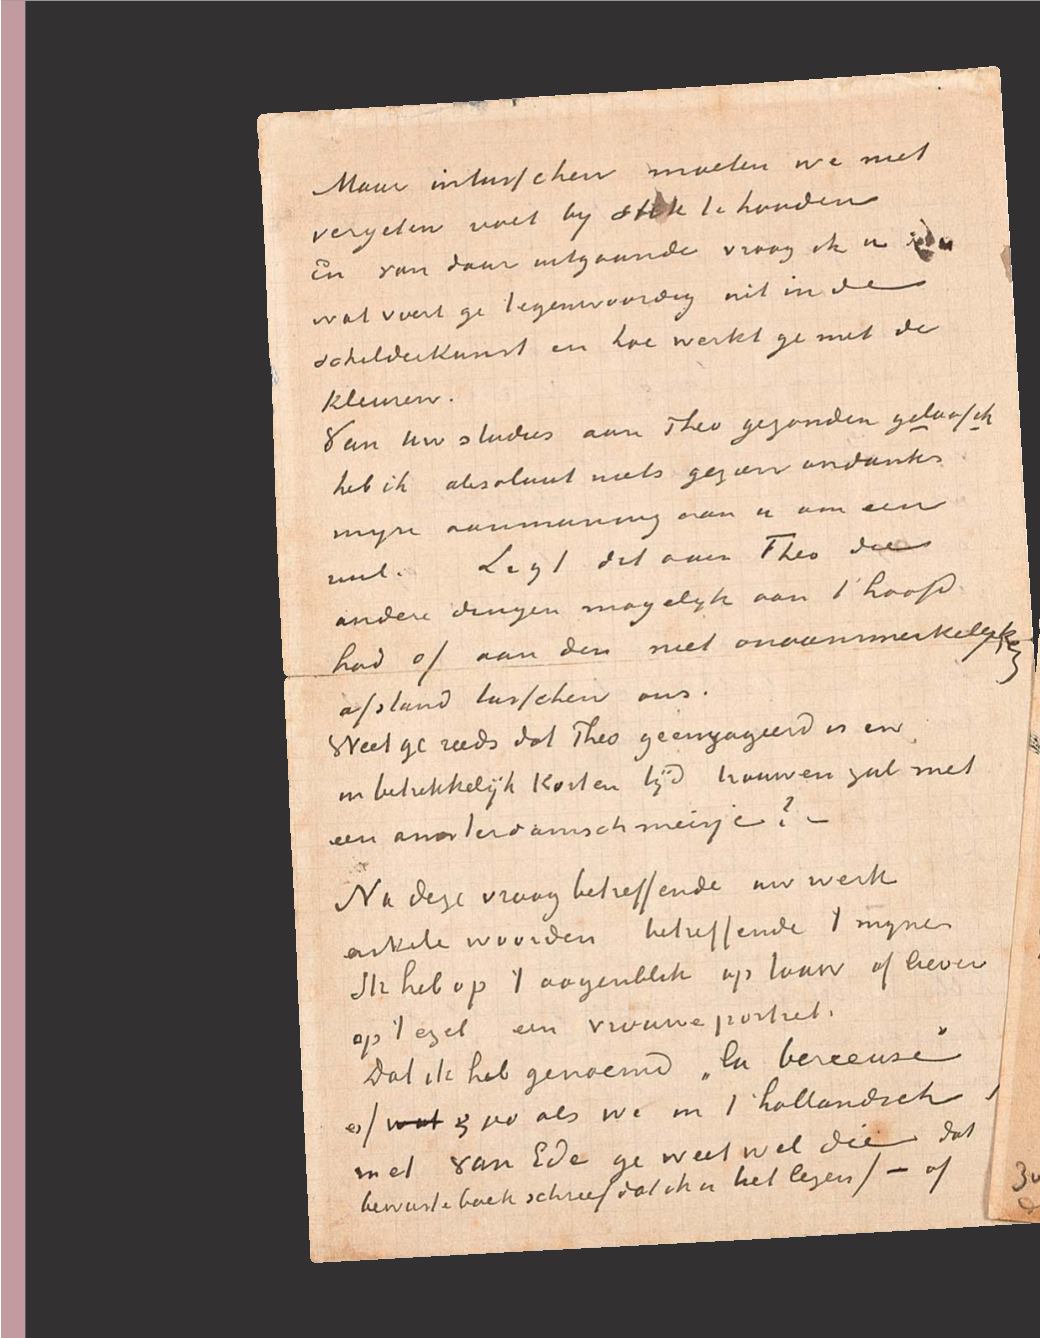 Maar intusschen moeten we niet
vergeten voet by stuk te houden
En van daar uitgaande vraag ik u
wat voert ge tegenwoordig uit in de
schilderkunst en hoe werkt ge met de
kleuren.
Van uw studies aan Theo gezonden
heb ik absoluut niets gezien ondanks
myn aanmaning aan u om een
ruil. Legt dit aan Theo die
andere dingen mogelyk aan 't hoofd
had of aan den niet onaanmerkelyken
afstand tusschen ons.
Weet ge reeds dat Theo geengageerd is en
in betrekkelijk korten tijd trouwen zal met
een amsterdamsch meisje? –
Na deze vraag betreffende uw werk
enkele woorden betreffende 't myne
Ik heb op 't oogenblik op touw of liever
op 't ezel een vrouweportret.
Dat ik heb genoemd „la berceuse”
of wat zoo als we in 't hollandsch
met van Ede ge weet wel die dat
bewuste boek schreef dat ik u liet lezen/ – of
3